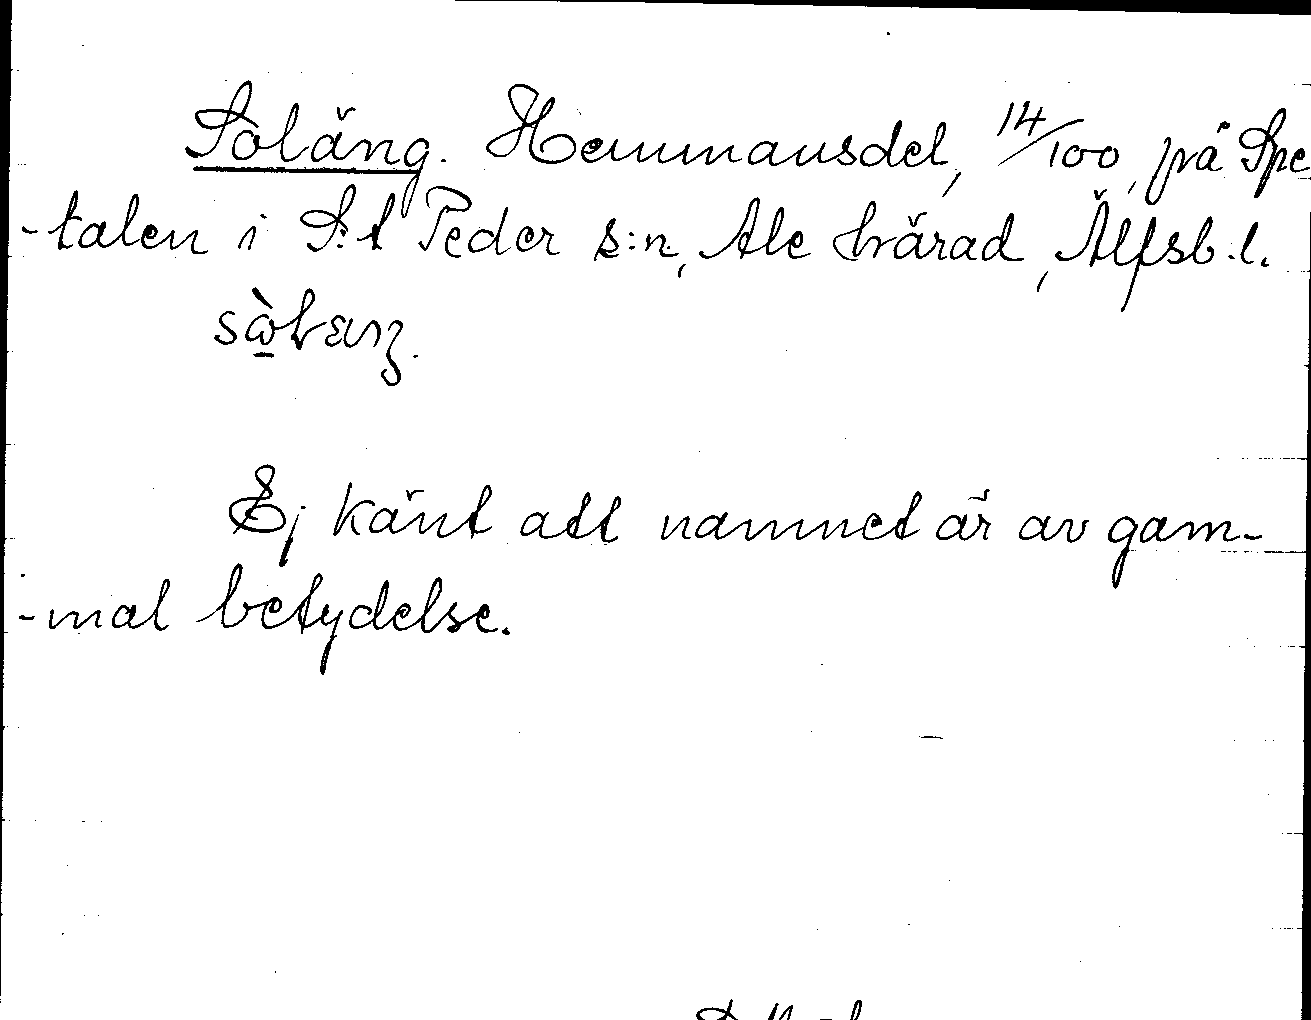 Soläng. Hemmansdel, 14/100, på Spe
-talen i S:t Peder s:n, Ale härad, Älfsb.l.
Ej känt att namnet är av gam-
-mal betydelse.